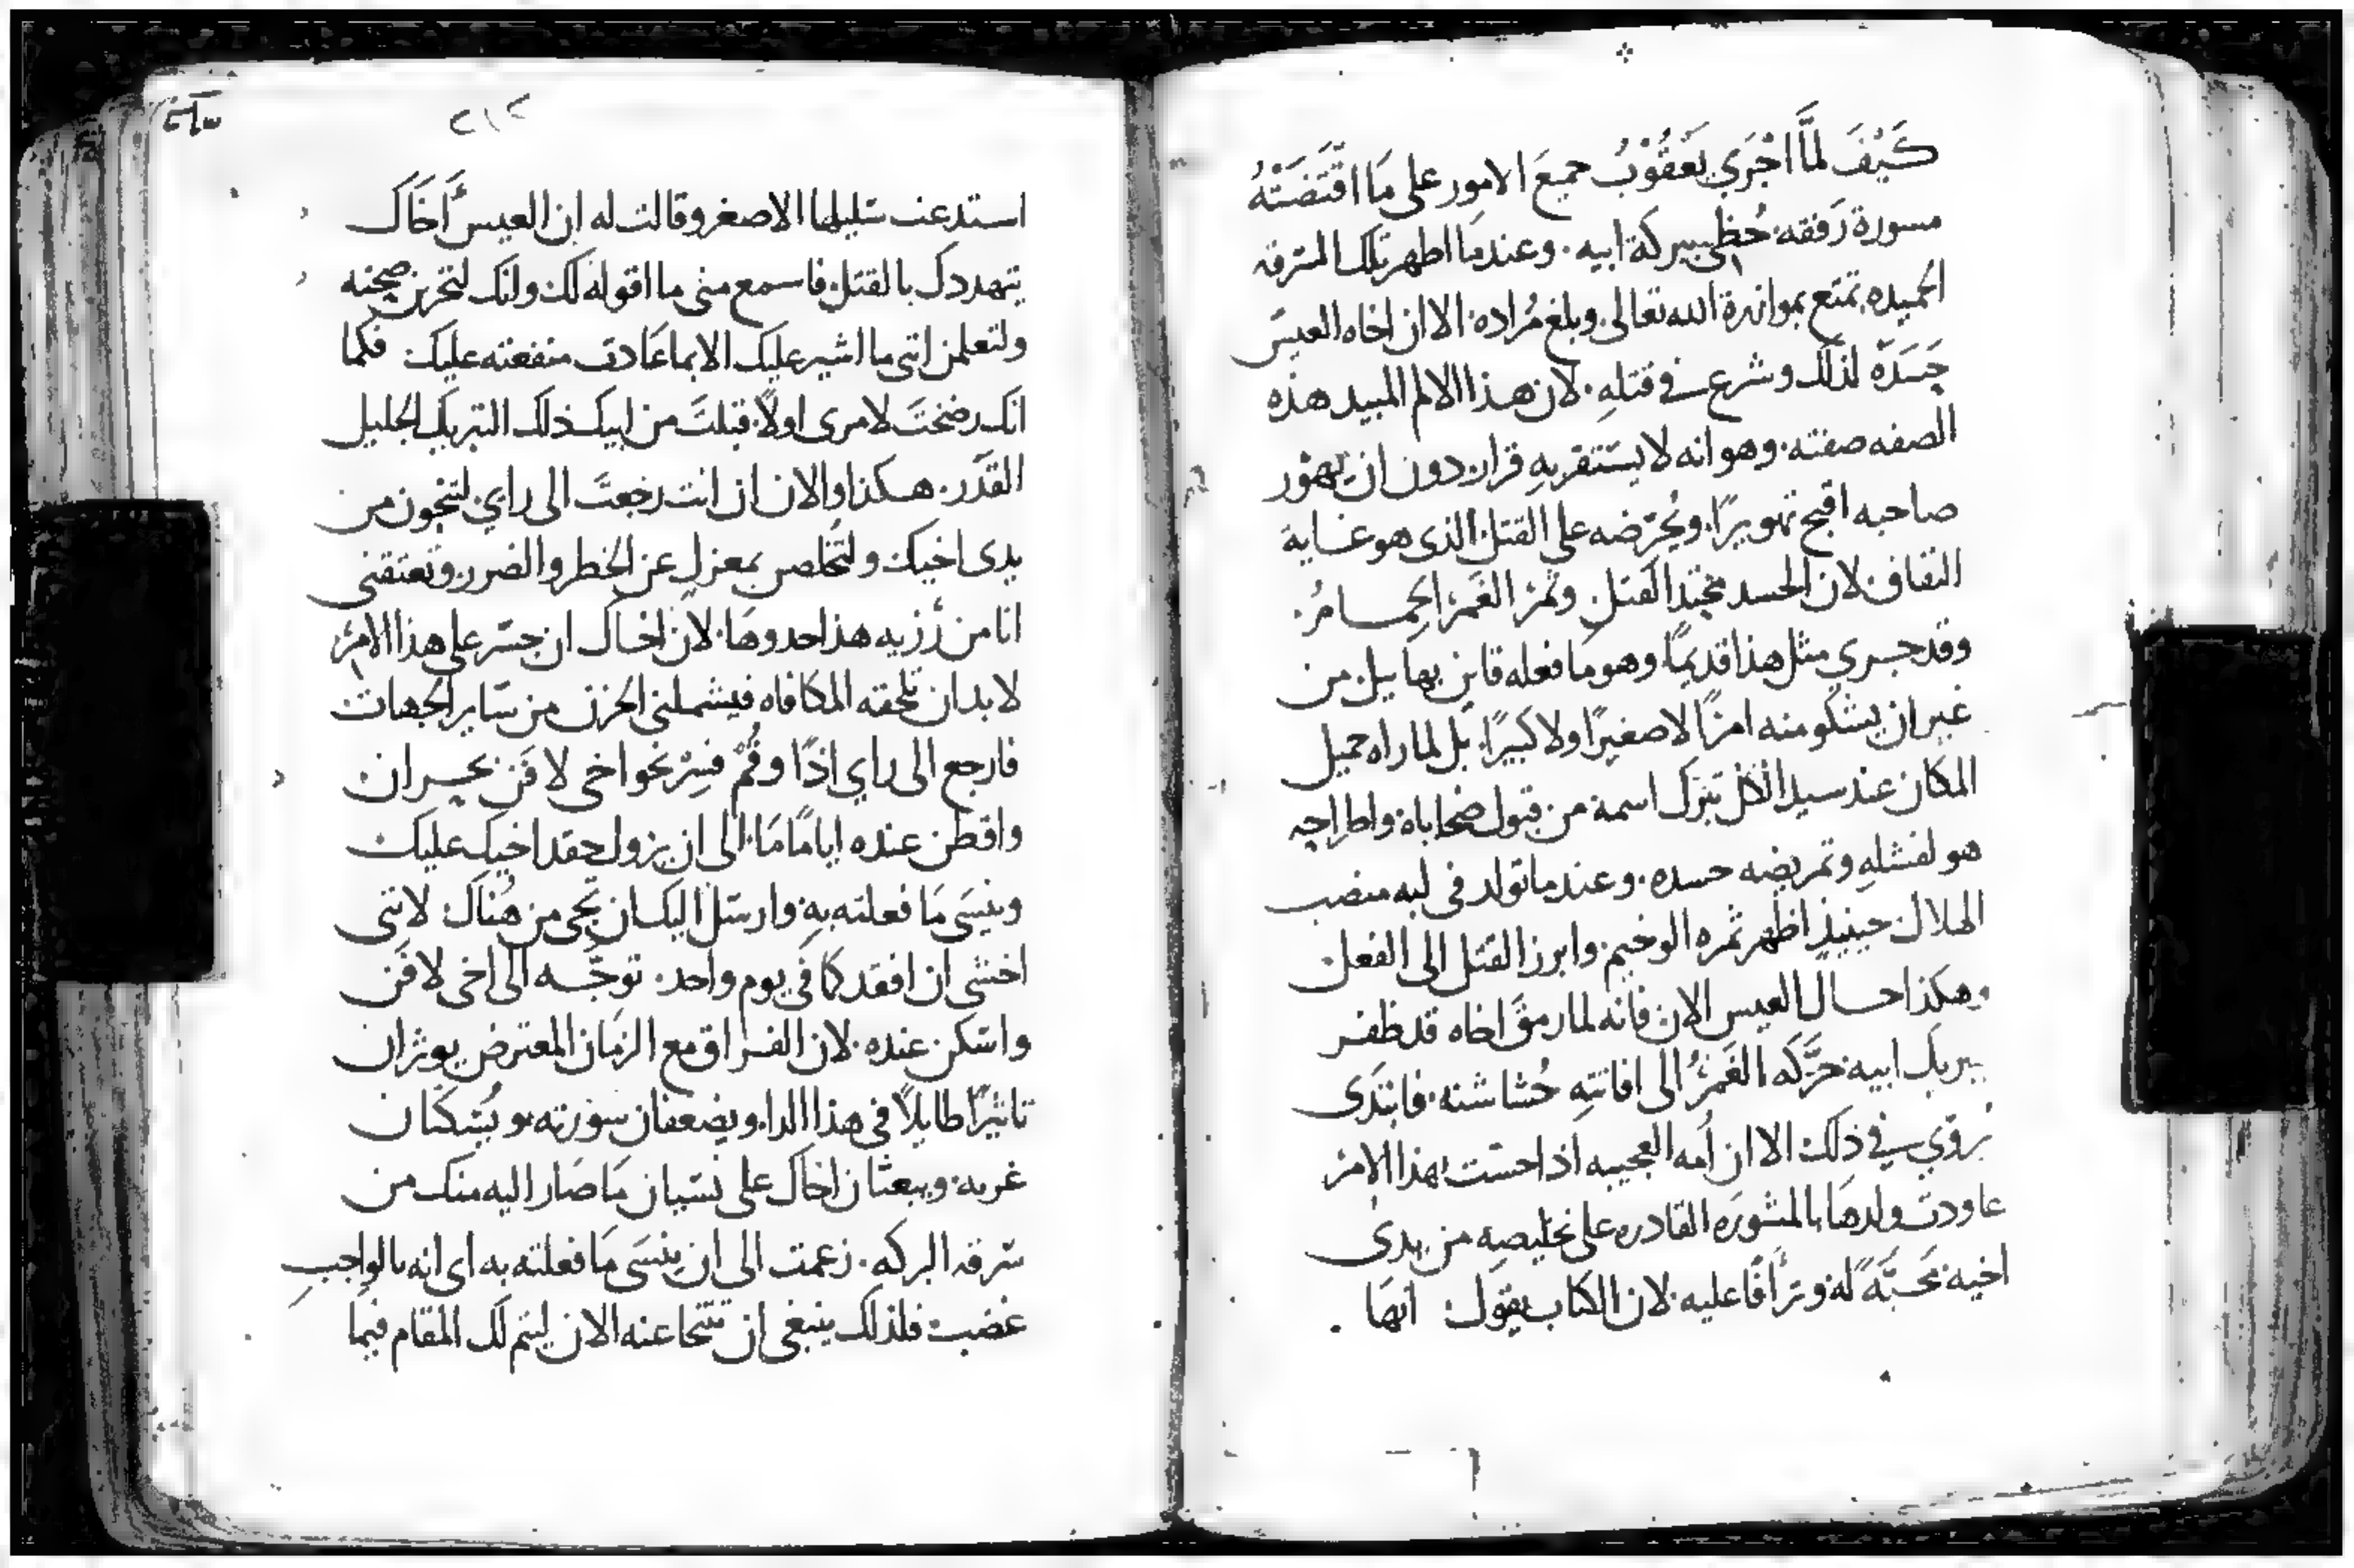 كَيْفَ لمَّا اجْرَي يَعْقُوْبُ جميعَ الامور على مَا اقْتَضَتْهُ
مسورة رَفقه حُظى ببركة ابيه. وعندمَا اظهر تلك السَرقه
الحميده تمتع بموازرة الله تعالى وبلغ مُراده. الا ان اخاه العيسَ
حَسَدَهُ لذلك وشرع في قتلهِ. لان هذا الالم المبيد هذه
الصفه صفته. وهو انه لا يستقر بهِ قرار دون ان يهوّر
صاحبه اقبح تهويرًا. ويُحرّضه على القتل الذى هو غاية
النفاق لان الحسد محتد القتل وثمر الغمر الحِمامُ.
وقد جري مثل هذا قديمًا وهو مَا فعله قاين بهابيل من
غير ان يشكو منه امرًا لا صغيرًا ولا كبيرًا. بل لما راه جميل
المكان عند سيد الكل بترك اسمه من قبول ضحاياه واطراحه
هو لفشلهِ وتمريضه حسده. وعندما تولد في لبه منصب
الهلال حينيذٍ اظهر ثمره الوخيم. وابرز القتل الى الفعل
وهكذا حال العيس الان فانه لما رمقَ اخاه قد ظفر
ببريك ابيه حَرَّكَه الغَمرُ الى افاتتهِ حُشاشته. فابتَدَى
يُروّي في ذلك الا ان اُمه العجيبه اذ احسّت بهذا الامر
عاودت ولدهَا بالمشورَه القادره على تخليصهِ من يدى
اخيه محبّةً له وترأفًا عليه. لان الكتاب يقول انهَا
٢١٢
استدعت سليلها الاصغر وقالت له ان العيسَ أَخَاكَ
يتهددك بالقتل. فاسمع منى ما اقوله لك وانك لتخبرن صحته
ولتعلمن اننى ما اشير عليك الا بما عَادت منفعته عليك فكما
انك رضختَ لامرى اولًا قبلتَ من ابيك ذلك التبريك الجليل
القَدَر. هكذا والان ان انت رجعتَ الى راي لتنجون من
يدى اخيك ولتُخلصن بمعزلٍ عن الخطر والضرر. وتعتقنى
انا من رُزيه هذا حدوهَا. لان اخاك ان جسّر على هذا الامر
لا بد ان تلحقه المكافاه فيشملنى الحزن من سَاير الجهات
فارجع الى راي اذًا وقُمْ فسِرْ نحو اخى لافَن بحران
واقطن عنده ايامًا مَا. الى ان يزول حقد اخيك عليك
وينسَى مَا فعلته بهِ وارسَل اليك ان تجى من هُناك. لاننى
اخشى ان افقد كما في يوم واحد. توجّه الى اخى لافَن
واسكن عنده. لان الفراق مع الزمَان المعترض يوثران
تاثيرًا طايلًا في هذا الدا. ويضعفان سورته. ويُسَكنان
غربه. ويبعثان اخاك على نسيان مَا صَار اليه منك من
سَرقه البركه. زعمت الى ان ينسَى مَا فعلته به اى انه بالواجبِ
غضب. فلذلك ينبغى ان تتنحا عنه الان ليتم لك المقام فيما